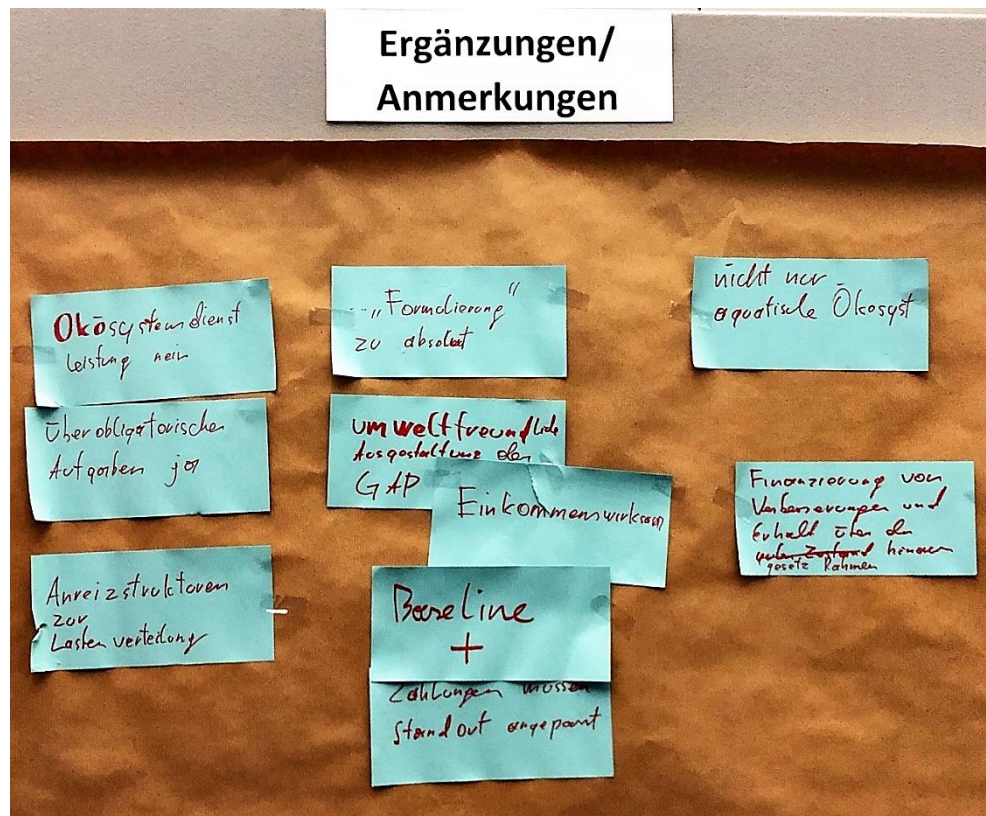 Ergänzungen/
Anmerkungen
Ökosystemdienst
leistung nein
überobligatorische
Aufgaben ja
Anreizstrukturen
zur
Lastenverteilung
"Formulierung"
zu absolut
umweltfreundliche
Ausgestaltung der
GAP
Einkommenswirksam
Baseline
+
Zahlungen müssen
Standort angepasst
nicht nur
aquatische Ökosyst
Finanzierung von
Verbesserungen und
Erhalt über den
guten Zustand hinaus
gesetz Rahmen